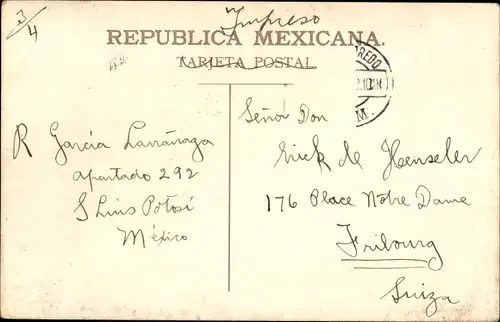 3/4
Impreso
REPUBLICA MEXICANA.
TARJETA POSTAL
REDO
R García Larrañaga
apartado 292
S Luis Potosí
México
Señor Don
Nick de Henseler
176 Place Nôtre Dame
Fribourg
Suiza